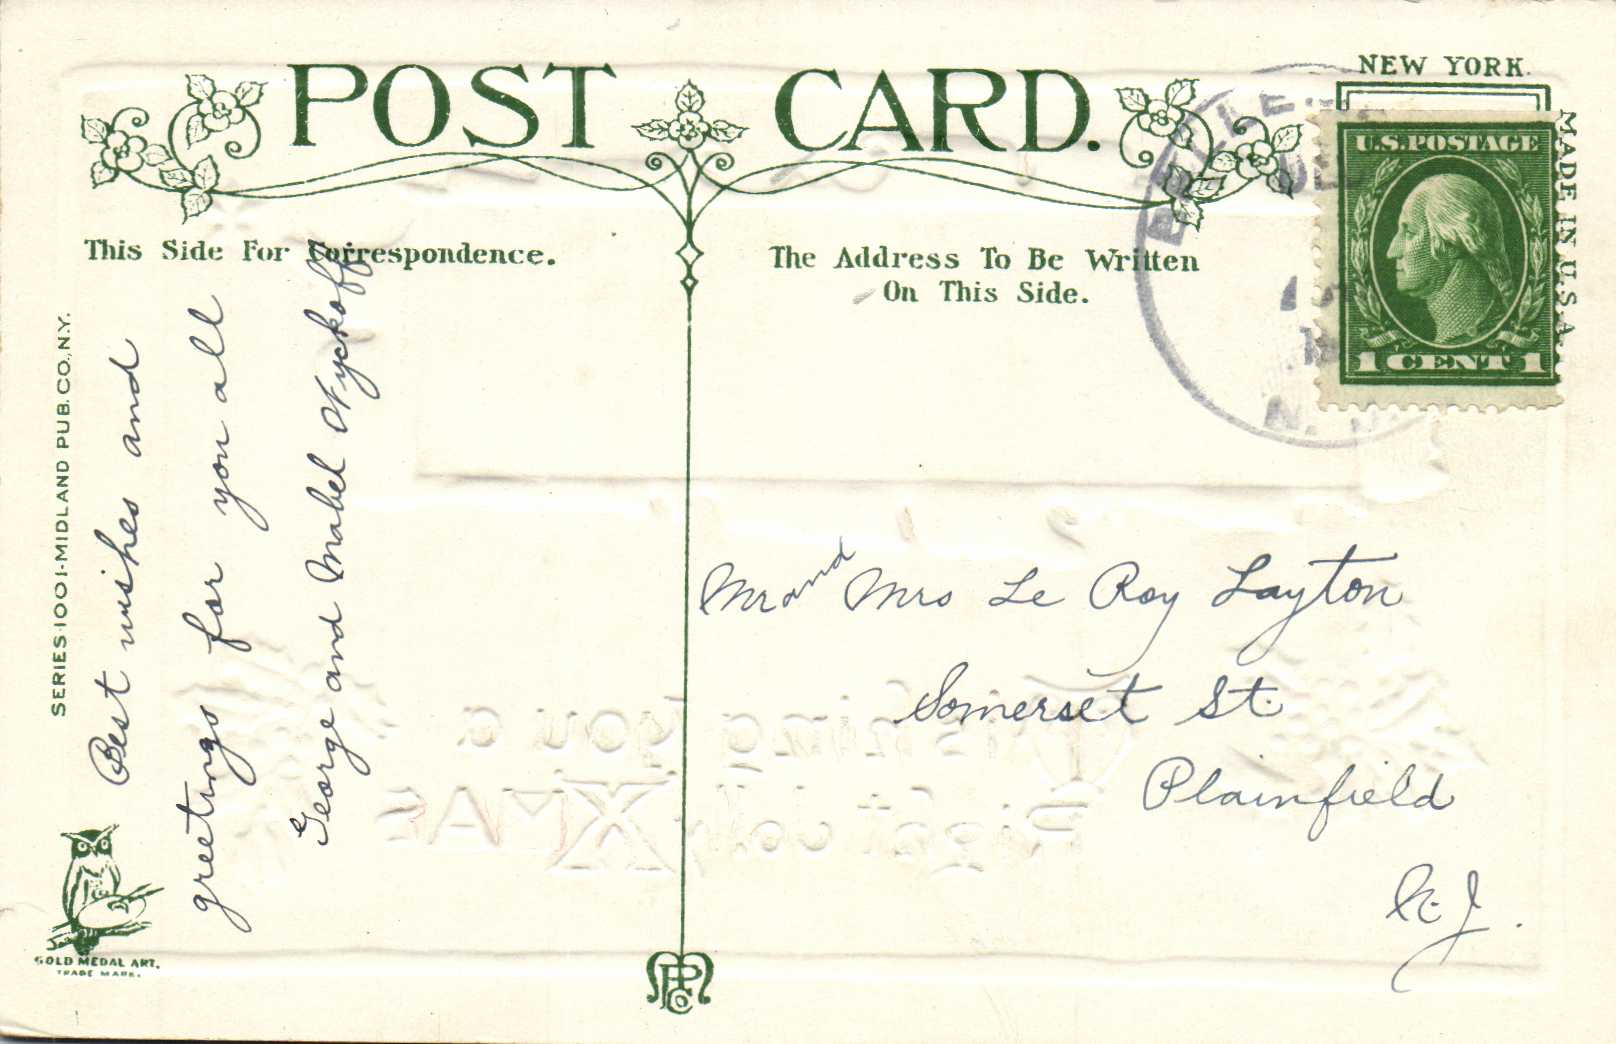 POST CARD.
NEW YORK.
MADE IN U.S.A.
U.S. POSTAGE
1 CENT 1
This Side For Correspondence.
The Address To Be Written
On This Side.
N.J.
SERIES·1001-MIDLAND PUB. CO., N.Y.
Best wishes and
greetings for you all
George and Mabel Wyckoff
Mr and Mrs Le Roy Layton
Somerset St.
Plainfield
N.J.
Wishing you a
Right Jolly XMAS
GOLD MEDAL ART.
TRADE MARK.